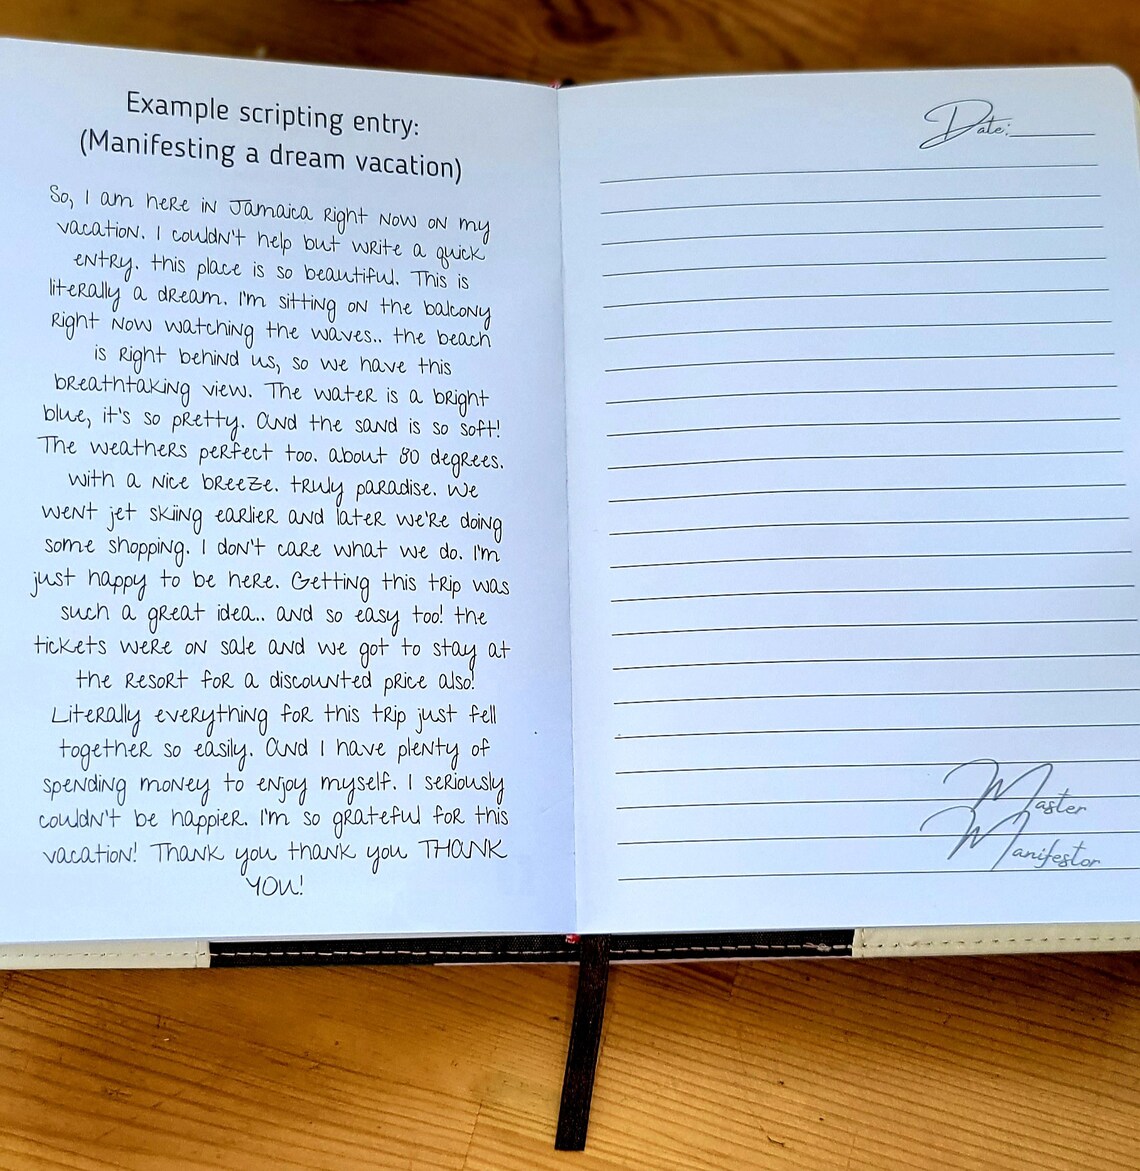 Example scripting entry:
(Manifesting a dream vacation)
So, I am here in Jamaica right now on my
vacation. I couldn't help but write a quick
entry. this place is so beautiful. This is
literally a dream. I'm sitting on the balcony
right now watching the waves.. the beach
is right behind us, so we have this
breathtaking view. The water is a bright
blue, it's so pretty. And the sand is so soft!
The weathers perfect too. about 80 degrees.
with a nice breeze. truly paradise. We
went jet skiing earlier and later we're doing
some shopping. I don't care what we do. I'm
just happy to be here. Getting this trip was
such a great idea.. and so easy too! the
tickets were on sale and we got to stay at
the resort for a discounted price also!
Literally everything for this trip just fell
together so easily. And I have plenty of
spending money to enjoy myself. I seriously
couldn't be happier. I'm so grateful for this
vacation! Thank you thank you THANK
YOU!
Date:
Master
Manifestor